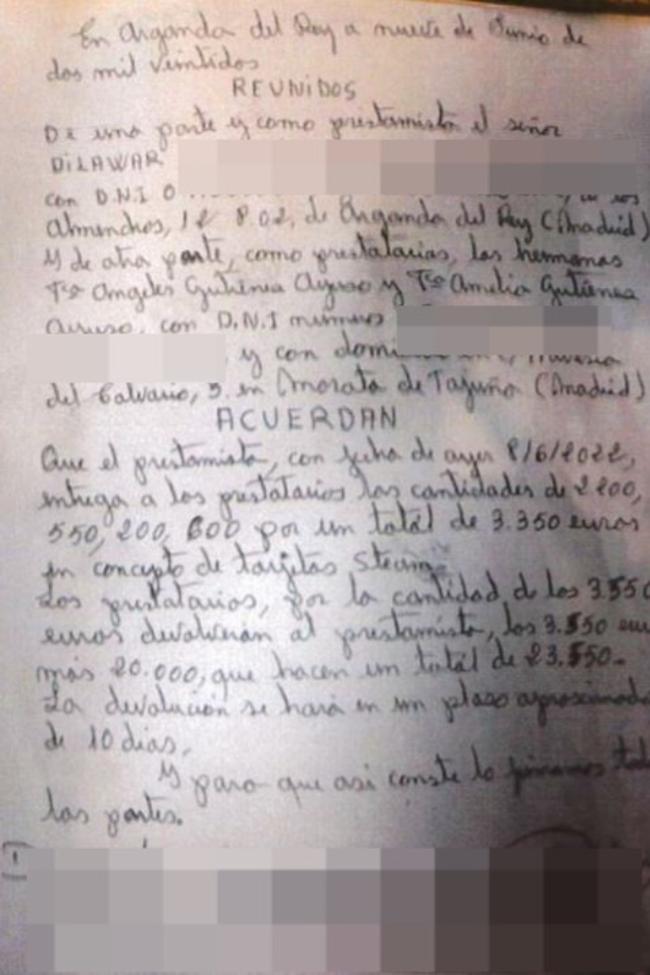 En Arganda del Rey a nueve de Junio de
dos mil veintidos
REUNIDOS
De una parte y como prestamista el señor
DILAWAR
con D.N.I 0
Almendros, 12 8.02, de Arganda del Rey (Madrid)
Y de otra parte, como prestatarias, las hermanas
Mª Angeles Gutierrez Ayuso y Mª Amelia Gutierrez
Ayuso, con D.N.I números
y con domi
del Calvario, 3. en Morata de Tajuña (Madrid)
ACUERDAN
Que el prestamista, con fecha de ayer 8/6/2022,
entrega a los prestatarios las cantidades de 2200,
550, 200, 600 por un total de 3.350 euros
en concepto de tarjetas Steam.
Los prestatarios, por la cantidad de los 3.550
euros devolverán al prestamista, los 3.550 eur
más 20.000, que hacen un total de 23.550.-
La devolución se hará en un plazo aproximado
de 10 dias.
Y para que asi conste lo firmamos
las partes.